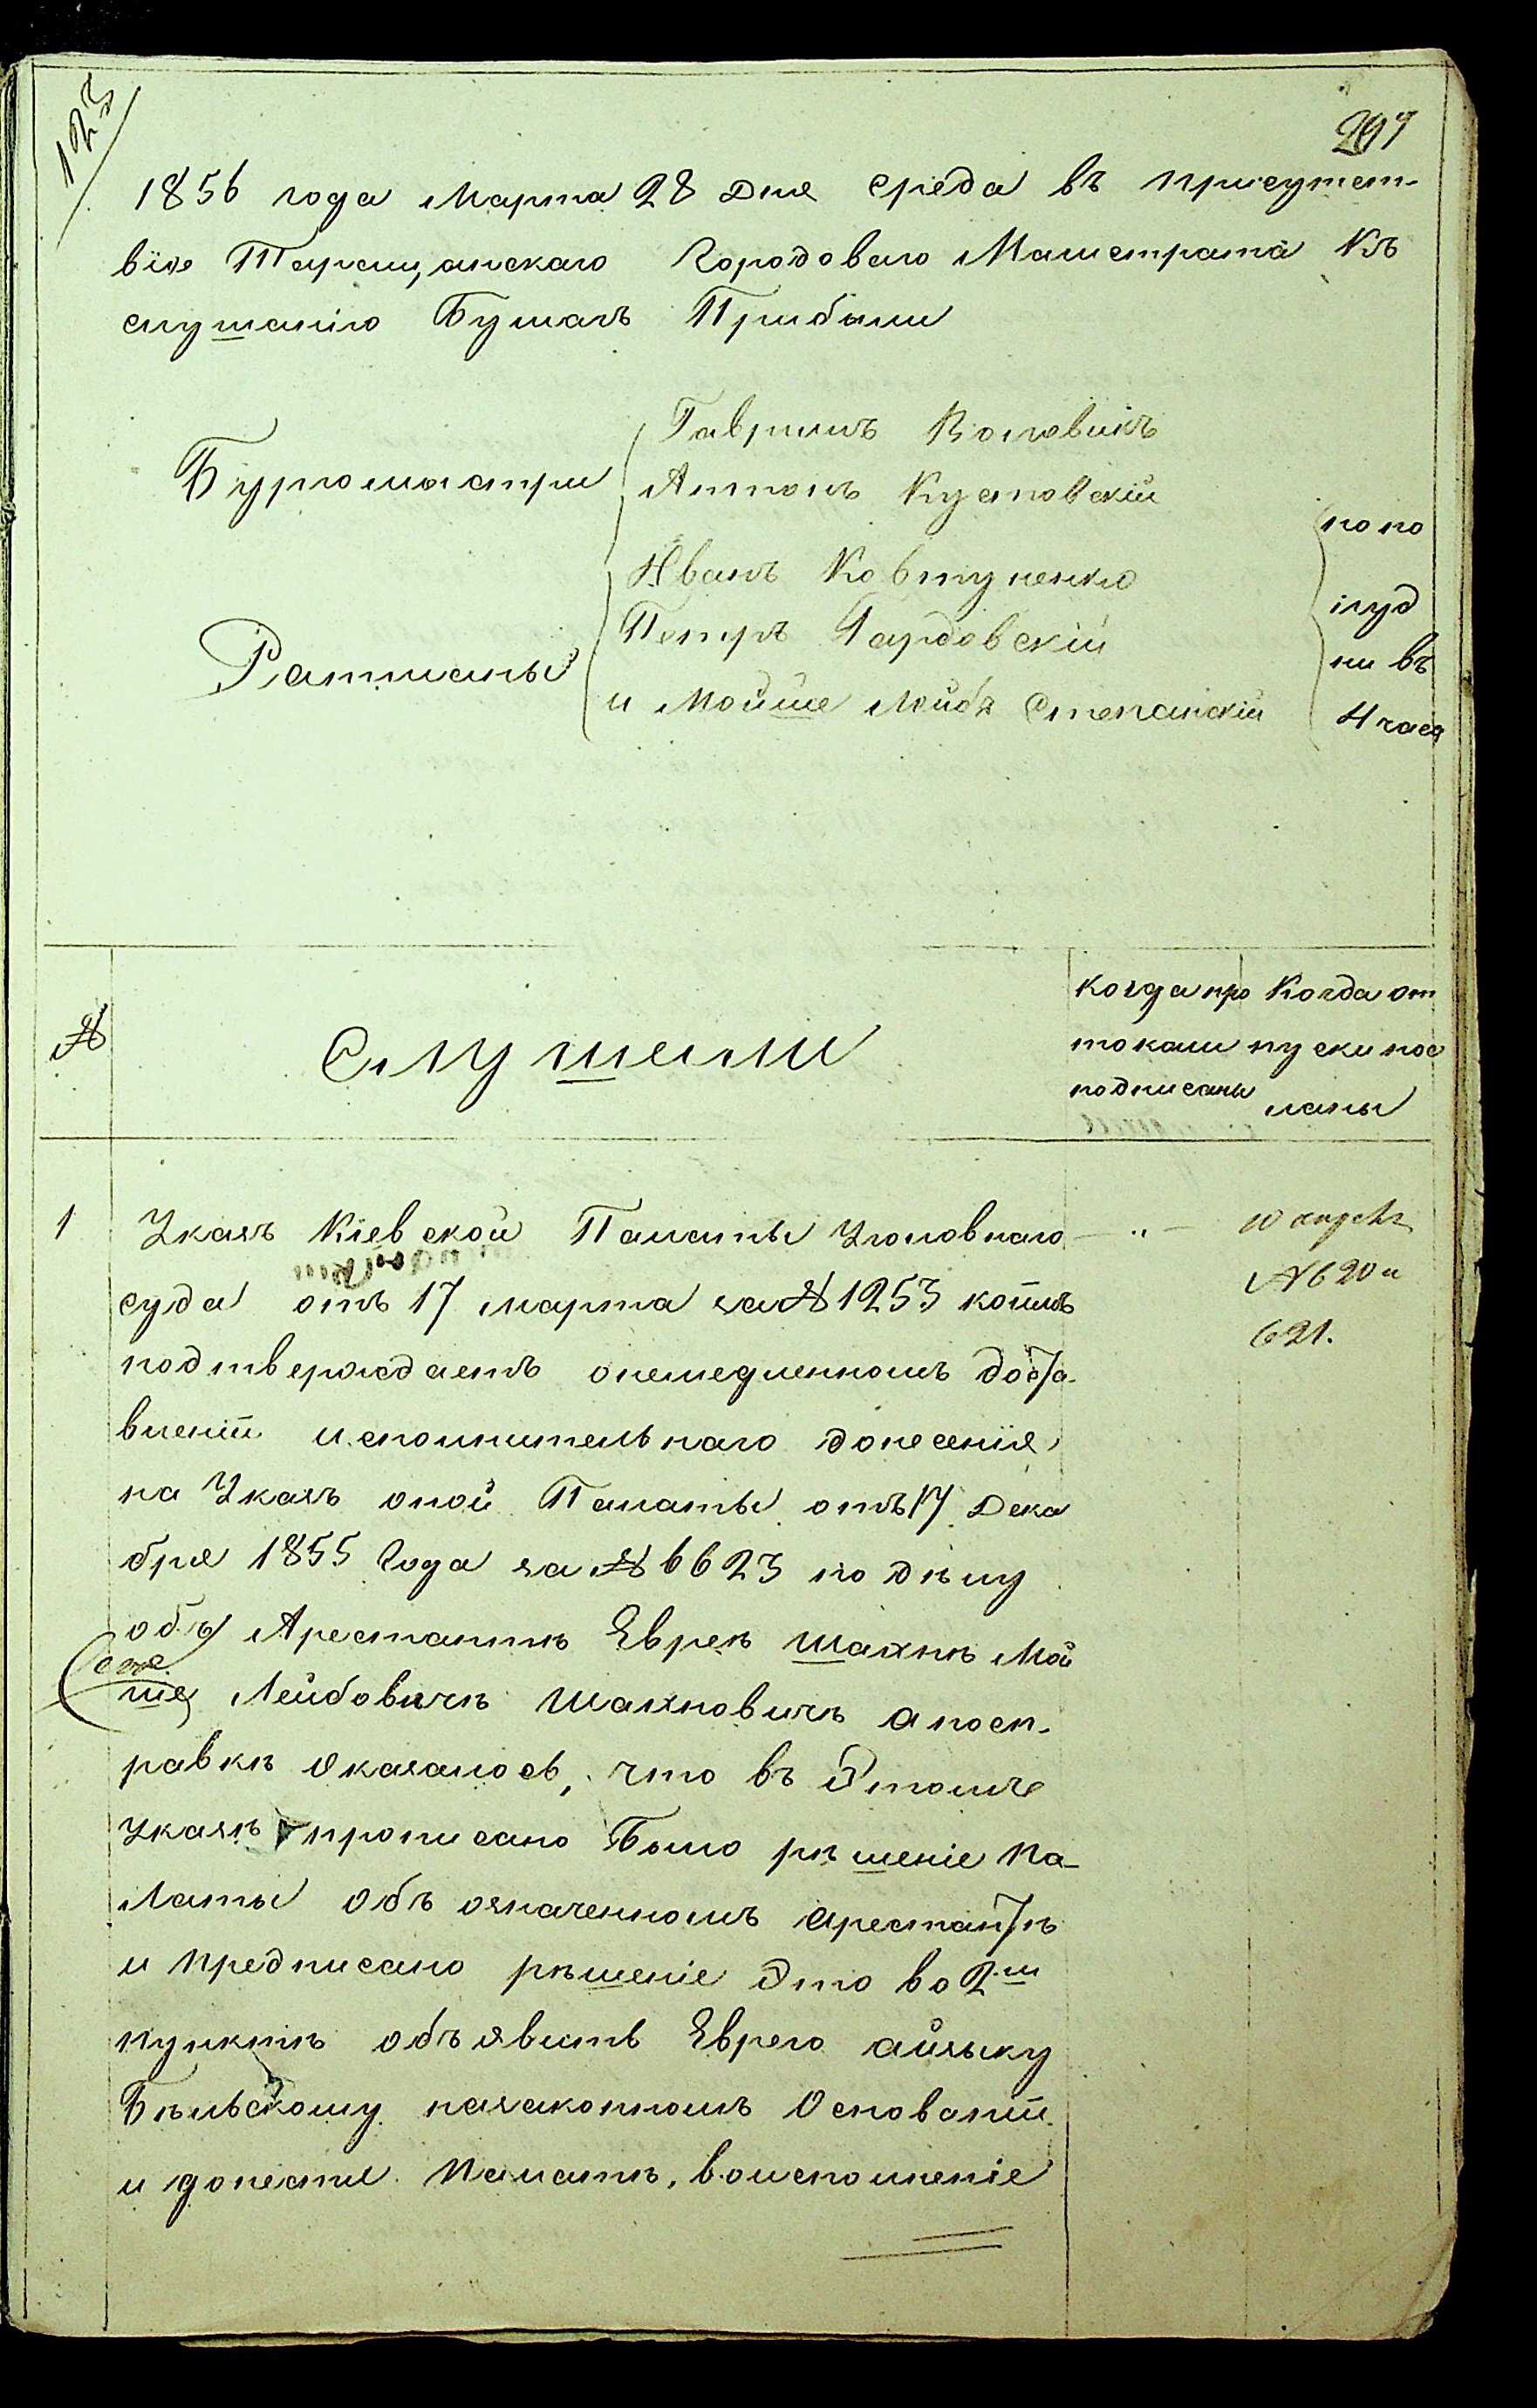 123
1856 года Марта 28 Дня среда въ присутст-
віе Таращанскаго Городоваго Магистрата Къ
слушанію Бумагъ Прибыли
Гаврилъ Воловикъ
Бургомистри
Антонъ Кустовскій
по по
Иванъ Ковтуненко
луд
Петръ Чардовскій
Ратманы
ни въ
и Мойше Лейба Степанскій
4 часа
№
Слушали
Когда про
токали
подписаны
Когда от
пуски пос
ланы
1
Указъ Кіевской Палаты Уголовнаго
10 апреля
суда отъ 17 марта за № 1253 коимъ
№ 620 и
621.
подтверждаетъ онемедленномъ доста-
вленіи исполнительнаго донесенія
на Указъ оной Палаты отъ 17 Дека
бря 1855 Года за № 6623 по дѣлу
объ Арестантѣ Евреѣ Шахнѣ Мой
ше Лейбовичѣ Шахновичѣ апосп-
равкѣ Оказалось, что въ Этомъ
Указѣ прописано Было рѣшеніе Па-
латы Объ означенномъ арестантѣ
и предписано рѣшеніе Это во 2-м
пунктѣ объявить Еврею айзыку
Бѣльскому назаконномъ Основаніи
и донести Палатѣ, воисполненіе